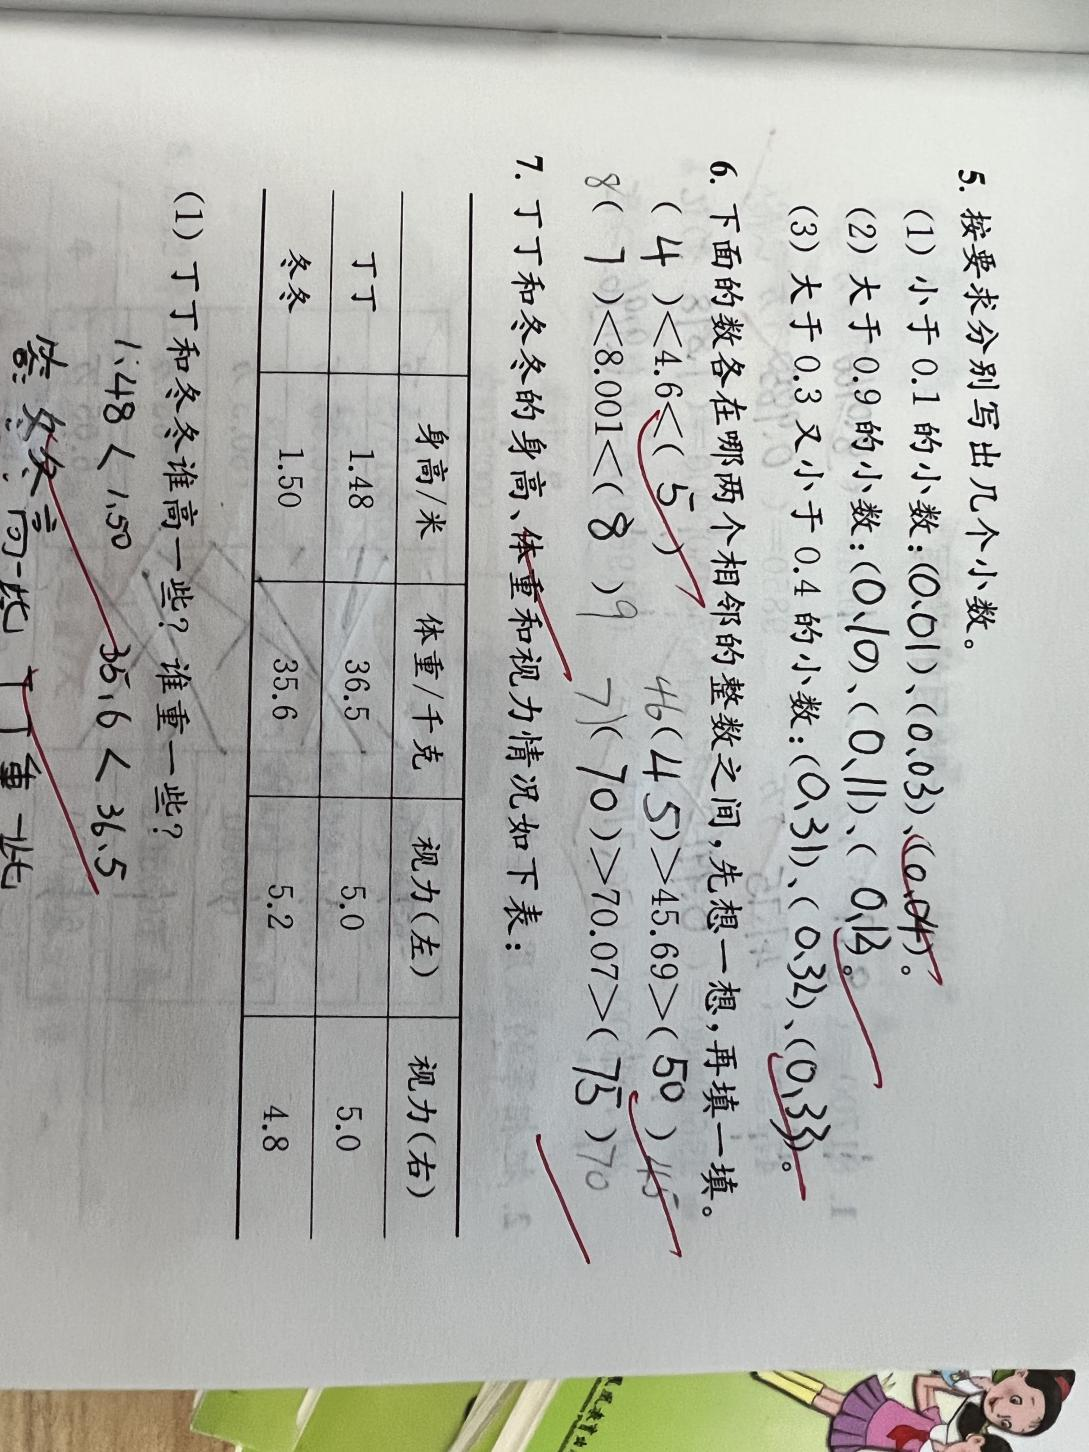 5. 按要求分别写出几个小数。
(1) 小于 0.1 的小数:(0.01)、(0.03)、(0.04)。
(2) 大于 0.9 的小数:(0.10)、(0.11)、(0.12)。
(3) 大于 0.3 又小于 0.4 的小数:(0.31)、(0.32)、(0.33)。
6. 下面的数各在哪两个相邻的整数之间,先想一想,再填一填。
(4)<4.6<(5) 46(45)>45.69>(50)45
8(7)<8.001<(8)9 71(70)>70.07>(75)70
7. 丁丁和冬冬的身高、体重和视力情况如下表:
身高/米 体重/千克 视力(左) 视力(右)
丁丁 1.48 36.5 5.0 5.0
冬冬 1.50 35.6 5.2 4.8
(1) 丁丁和冬冬谁高一些?谁重一些?
1.48<1.50 35.6<36.5
答:冬冬高一些 丁丁重一些